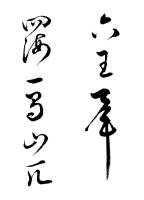 六王畢
四海一蜀山兀